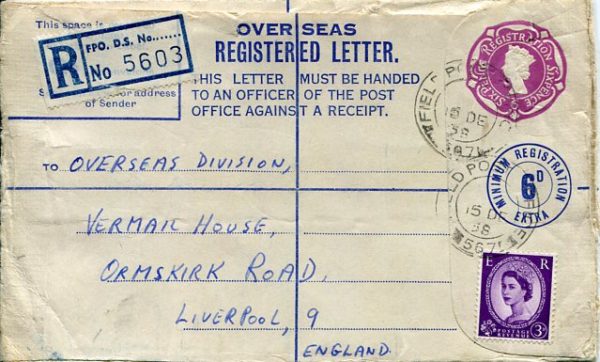 This space is
OVER SEAS
REGISTERED LETTER.
R
FPO. D.S. No........
No 5603
for address
of Sender
THIS LETTER MUST BE HANDED
TO AN OFFICER OF THE POST
OFFICE AGAINST A RECEIPT.
REGISTRATION SIXPENCE
FIELD PO
15 DE
58
TO OVERSEAS DIVISION,
MINIMUM REGISTRATION
6D
EXTRA
15 DE
58
VERMAIL HOUSE,
ORMSKIRK ROAD,
LIVERPOOL, 9
ENGLAND.
E R
POSTAGE REVENUE
3D